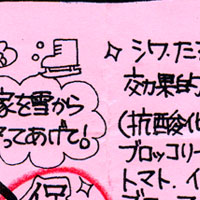 家を雪から
ってあげて!
シワ.た
効果的
(抗酸化
ブロッコリー
トマト.イ